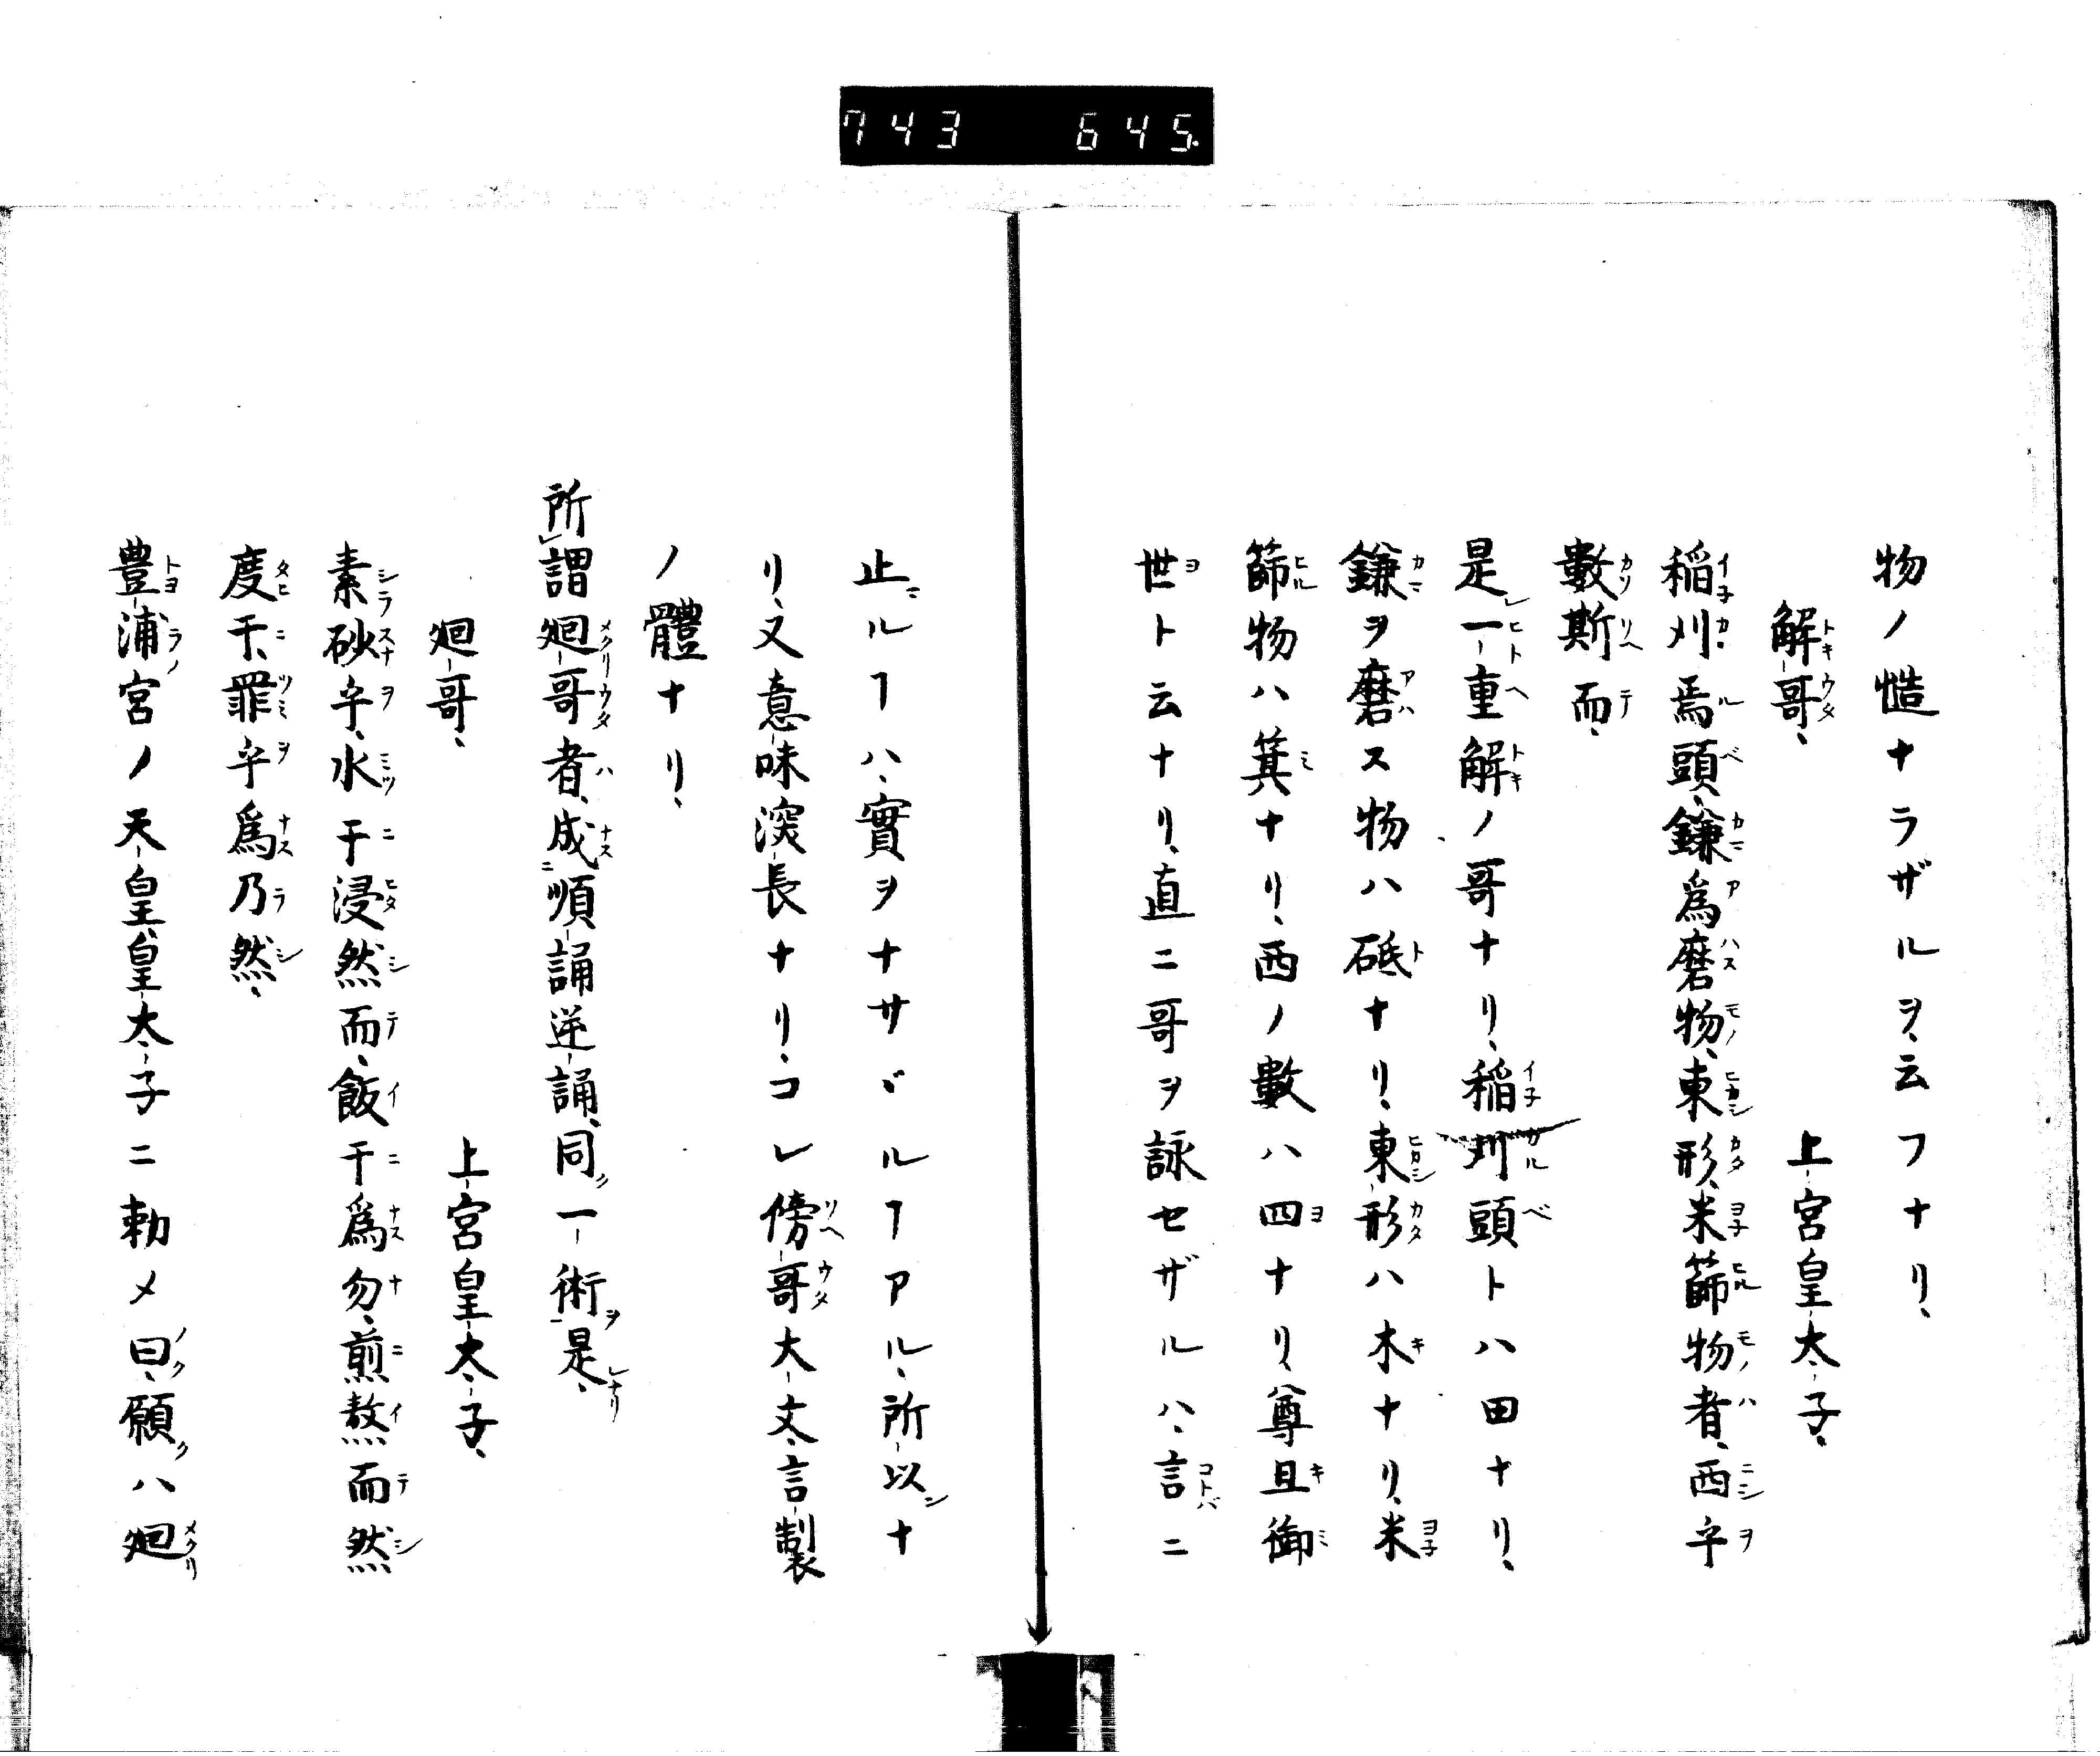 743 645.
物ノ慥ナラザルヲ、云フナリ、
解哥、上宮皇太子、
稲刈焉頭、鎌爲磨物、東形、米篩物者、西乎
數斯而、
是一重解ノ哥ナリ、稲刈頭トハ田ナリ、
鎌ヲ磨ス物ハ砥ナリ、東形ハ木ナリ、米
篩物ハ箕ナリ、西ノ數ハ四ナリ、尊且御
世ト云ナリ、直ニ哥ヲ詠セザルハ、言ニ
止ルヿハ、實ヲナサヾルヿアル、所以ナ
リ、又意味深長ナリ、コレ傍哥大丈、言製
ノ體ナリ、
所謂廻哥者、成順誦逆誦、同一術是、
廻哥、上宮皇太子、
素砂乎、水干浸然而、飯干爲勿、煎熬而然
度干、罪乎爲乃然、
豊浦宮ノ天皇、皇太子ニ勅メ曰、願ハ廻